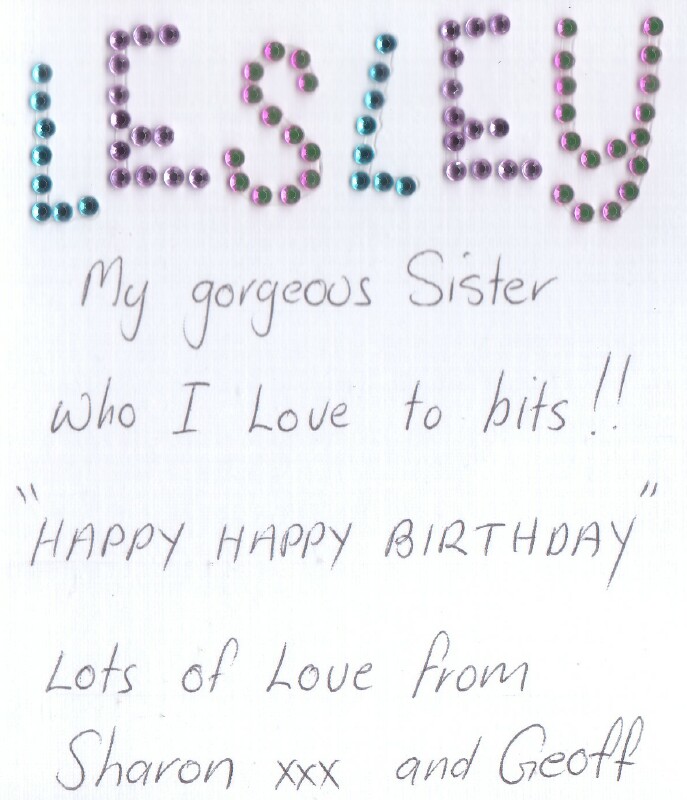 LESLEY
My gorgeous Sister
who I Love to bits!!
"HAPPY HAPPY BIRTHDAY"
Lots of Love from
Sharon xxx and Geoff